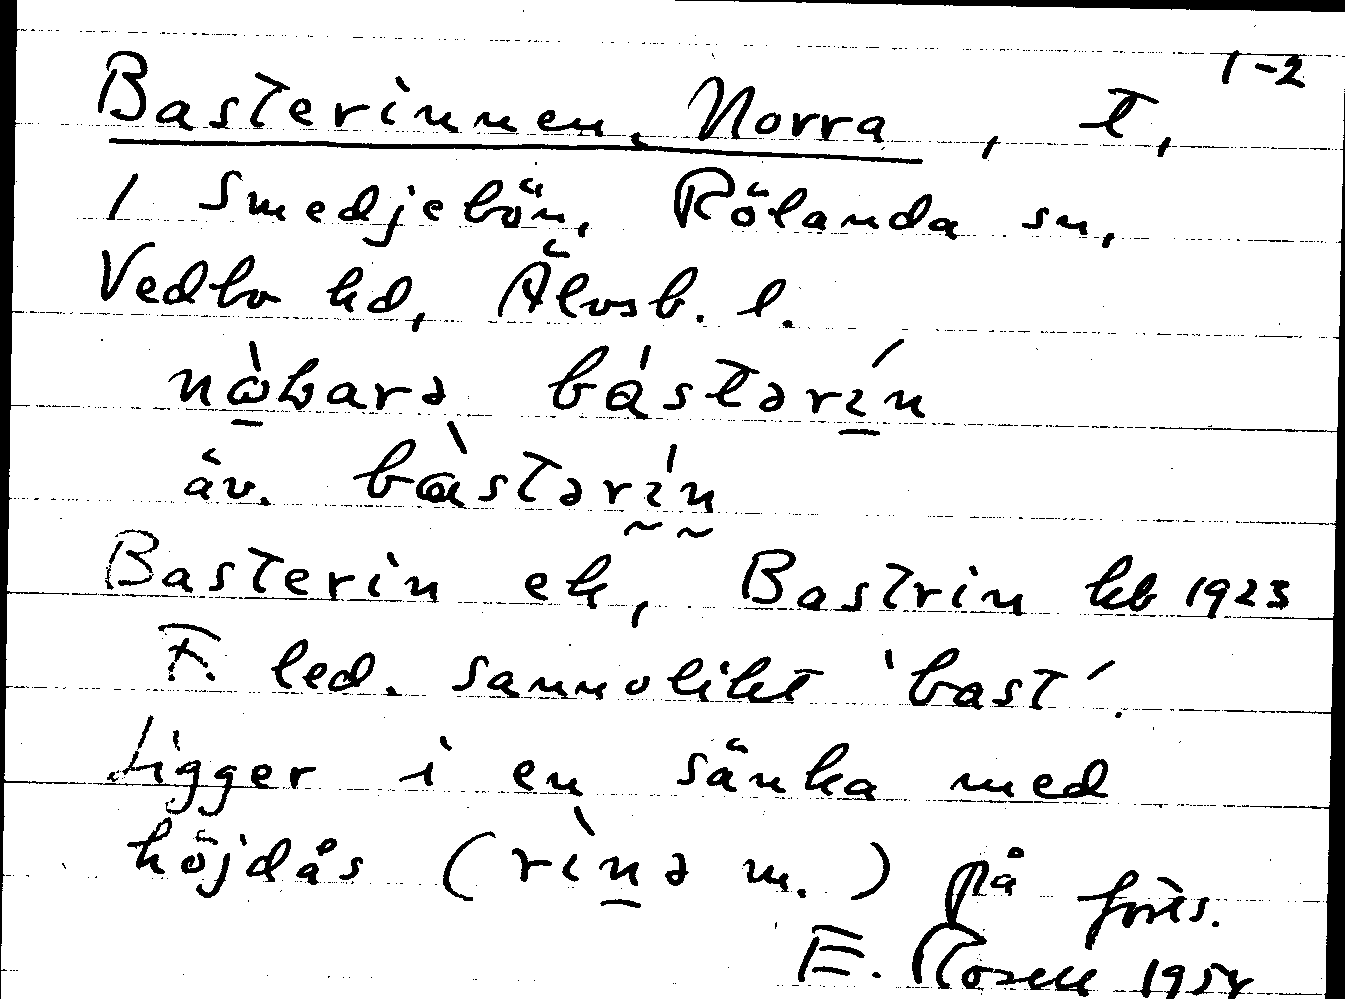 1-2
Basterinnen, Norra, t,
i Smedjebön, Rölanda sn,
Vedbo hd, Älvsb. l.
nòbarə bástərín
äv. bàstərín
Basterin ek, Bastrin kb 1923
F. led. sannolikt 'bast'.
Ligger i en sänka med
höjdås (rìnə m.) på forts.
E. Rosell 1954